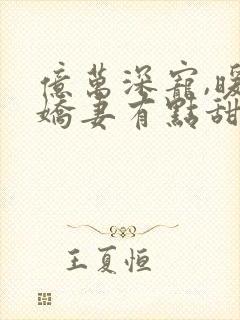 億萬深寵,暖
嬌妻有點甜
王夏恒